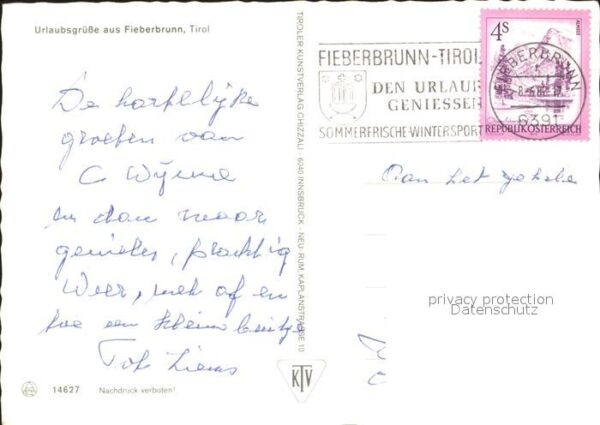 Urlaubsgrüße aus Fieberbrunn, Tirol
De hartelijke
groeten van
C Wijma
en dan maar
genieten, prachtig
Weer, met af en
toe een klein beetje
Tot Ziens
14627 Nachdruck verboten!
TIROLER KUNSTVERLAG CHIZZALI · 6040 INNSBRUCK - NEU-RUM, KAPLANSTRASSE 10
KTV
FIEBERBRUNN-TIROL
DEN URLAUB
GENIESSEN
SOMMERFRISCHE-WINTERSPORT
4S
ALMSEE
REPUBLIK ÖSTERREICH
FIEBERBRUNN
6391
Aan het
privacy protection
Datenschutz